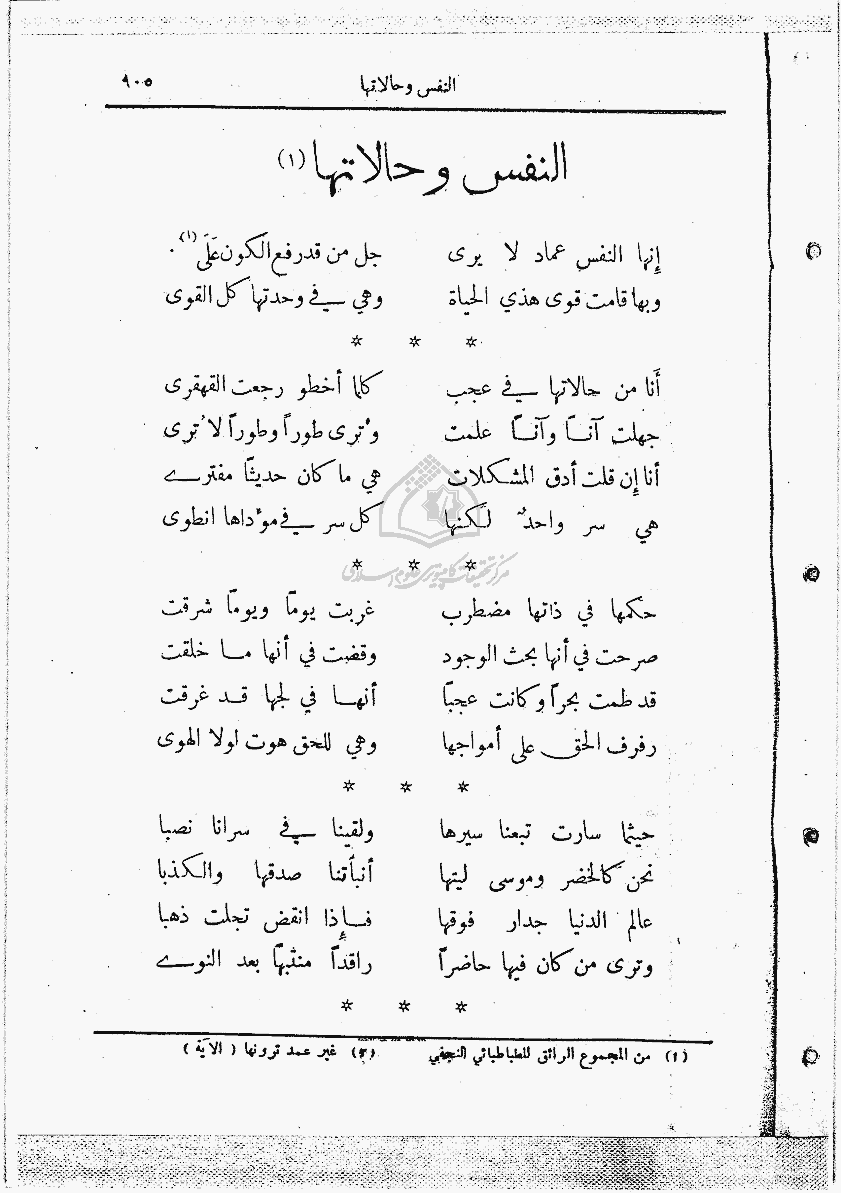 النفس وحالاتها
٩٠٥
النفس وحالاتها (١)
إنها النفس عماد لا يرى جل من قدرفع الكون عَلَى (١) .
وبها قامت قوى هذي الحياة وهي في وحدتها كل القوى
* * *
أنا من حالاتها في عجب كلما أخطو رجعت القهقرى
جهلت آناً وآناً علمت وتُرى طوراً وطوراً لا تُرى
أنا إن قلت أدق المشكلات هي ما كان حديثاً مفترى
هي سر واحدٌ لكنها كل سر في مؤداها انطوى
* * *
مركز تحقيقات كامپيوتری علوم اسلامی
حكمها في ذاتها مضطرب غربت يومًا ويومًا شرقت
صرحت في أنها بحث الوجود وقضت في أنها ما خلقت
قد طمت بحراً وكانت عجبًا أنها في لجها قد غرقت
رفرف الحق على أمواجها وهي للحق هوت لولا الهوى
* * *
حيثما سارت تبعنا سيرها ولقينا في سرانا نصبا
نحن كالخضر وموسى ليتها أنبأتنا صدقها والكذبا
عالم الدنيا جدار فوقها فإذا انقض تجلت ذهبا
وترى من كان فيها حاضراً راقداً منتبهاً بعد النوى
* * *
(١) من المجموع الرائق للطباطبائي النجفي (٢) غير عمد ترونها ( الآية )